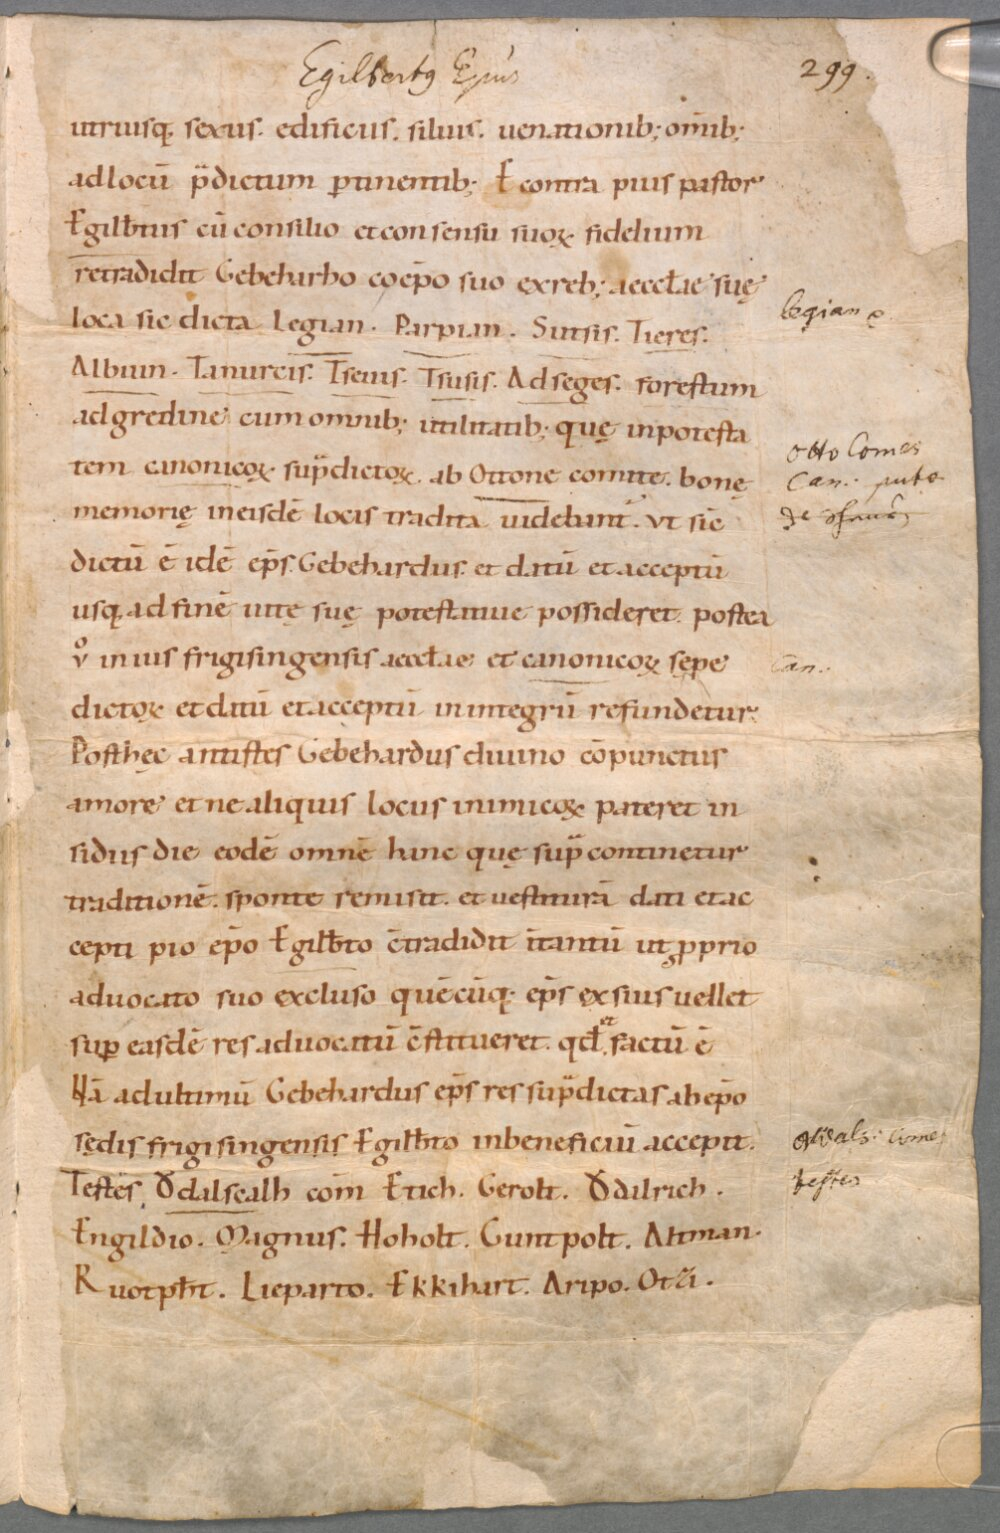 Egilbertꝰ Ep̃us
299.
utriusq. sexus. edificiis. siluis. uenationib; om̅ib;
ad locū p̈dictum ꝑtinentib; E contra pius pastor
Egilb̅tus cū consilio et consensu suoꝝ fidelium
retradidit Gebeharbo coep̅o suo ex reb; aeccl̅ae suę
loca sic dicta Legian. Parpian. Sutsis. Tieres.
legian ę.
Albiun. Tanurcis. Tseuis. Tsusis. Ad seges. forestum
ad gredine cum omnib; utilitatib; quę in potesta
tem canonicoꝝ sup̈dictoꝝ. ab Ottone comite. bonę
Otto Comes
Can.
memorię in eisdē locis tradita uidebant᷑. Vt sic̅
dictū ē idē ep̅s Gebehardus et datū et acceptū
usq. ad finē uitę suę potestatiue possideret. postea
v̊ in ius frigisingensis aeccl̅ae et canonicoꝝ sępe
Can.
dictoꝝ et datū et acceptū in integrū refundetur.
Posthęc antistes Gebehardus diuino cōpunctus
amore et ne aliquis locus inimicoꝝ pateret in
sidiis die eodē omnē hanc quę sup̈ continetur
traditionē. sponte remisit. et uestiturā dati et ac
cepti pio ep̅o Egilb̅to c̅tradidit itantū ut ꝓprio
aduocato suo excluso quēcūq. ep̅s ex suis uellet
suꝑ easdē res aduocatū c̅stitueret. qd̅ et factū ē
Nā ad ultimū Gebehardus ep̅s res sup̈dictas ab ep̅o
sędis frigisingensis Egilb̅to in beneficiū accepit.
Testes. Ŏdalscalh com̅ Etich. Gerolt. Ŏdilrich.
testes
Engildio. Magnus. Hoholt. Guntpolt. Altman.
Ruotph̅t. Lieparto. Ekkihart. Aripo. Otri.